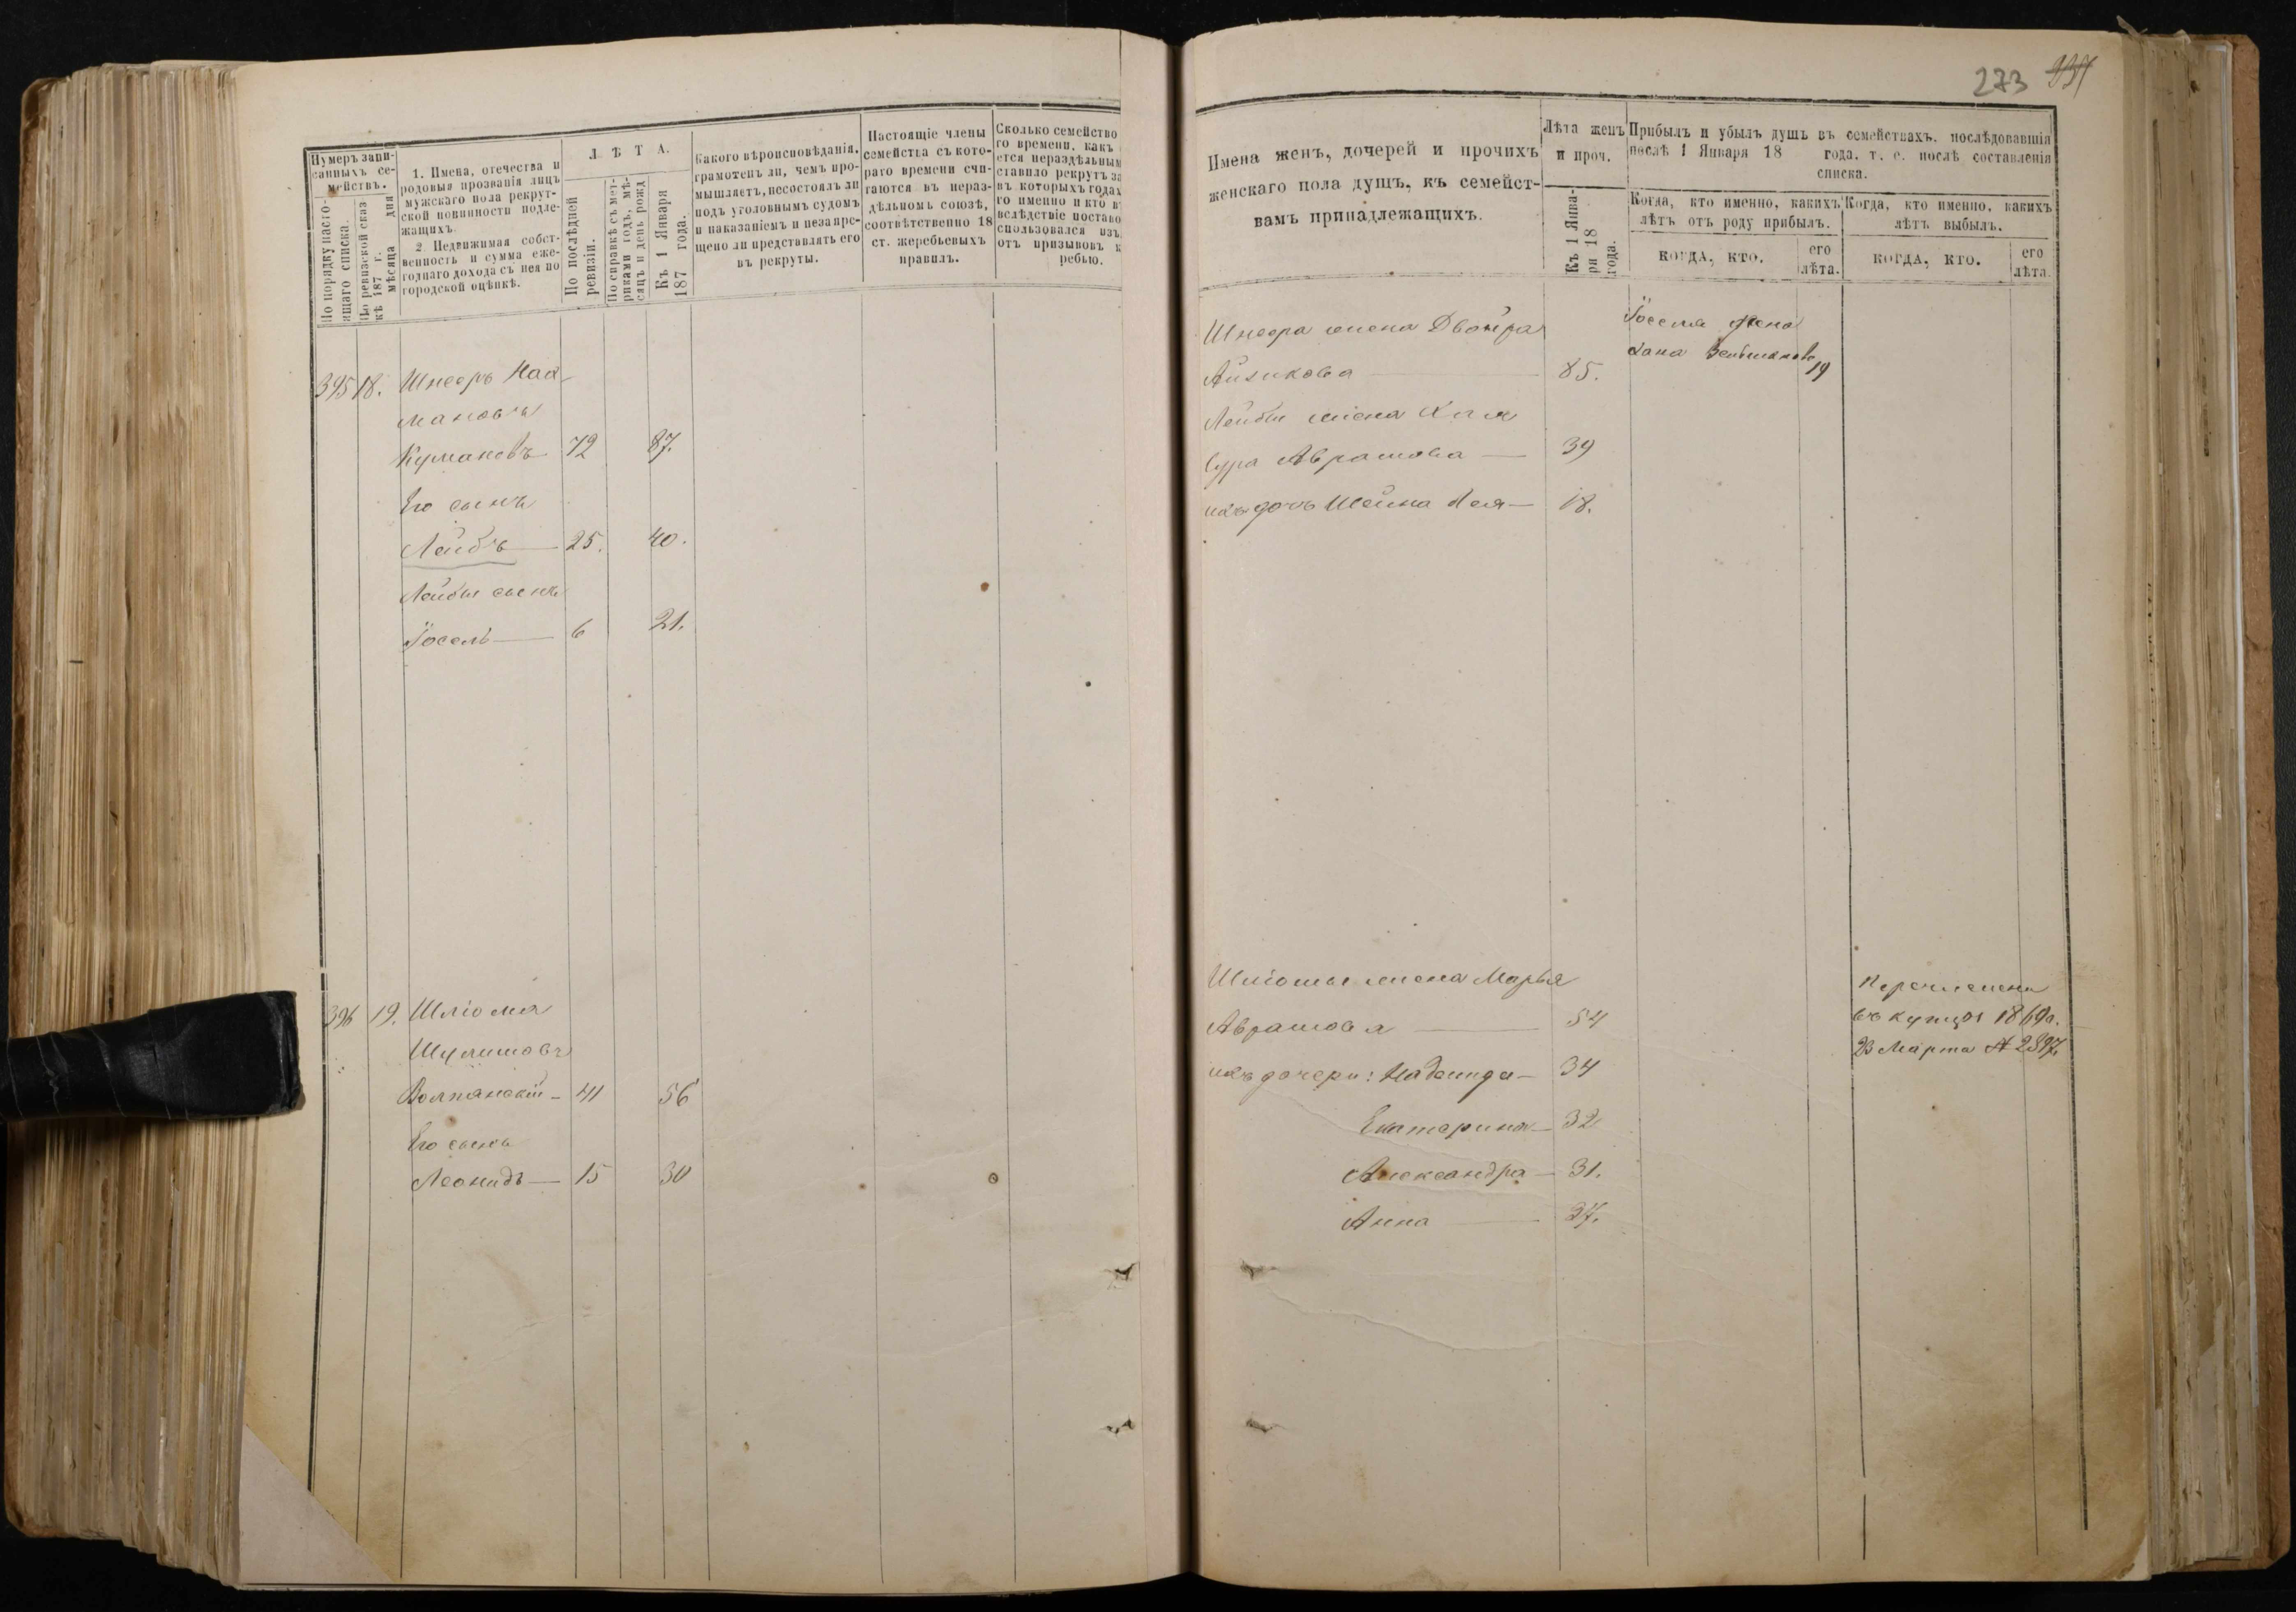 273 137
Нумеръ запи-
санныхъ се-
мействъ.
По порядку насто-
ящаго списка.
По ревизской сказ
кѣ 187 г. дня
мѣсяца
1. Имена, отечества и
родовыя прозванія лицъ
мужскаго пола рекрут-
ской повинности подле-
жащихъ.
2. Недвижимая собст-
венность и сумма еже-
годнаго дохода съ нея по
городской оцѣнкѣ.
Л Ѣ Т А.
По послѣдней
ревизіи.
По справкѣ съ мет-
риками годъ, мѣ-
сяцъ и день рожд
Къ 1 Января
187 года.
Какого вѣроисповѣданія,
грамотенъ ли, чѣмъ про-
мышляетъ, несостоялъ ли
подъ уголовнымъ судомъ
и наказаніемъ и незапре-
щено ли представлять его
въ рекруты.
Настоящіе члены
семейства съ кото-
раго времени счи-
таются въ нераз-
дѣльномъ союзѣ,
соотвѣтственно 18
ст. жеребьевыхъ
правилъ.
Сколько семейство
го времени, какъ
ется нераздѣльным
ставило рекрутъ за
въ которыхъ годах
го именно и кто в
вслѣдствіе поставо
спользовался изъ
отъ призывовъ к
ребью.
395 18. Шнееръ Наа-
мановъ
Кумановъ 72 87.
Его сынъ
Лейбъ 25. 40.
Лейбы сынъ
Іосель 6 21.
396 19. Шліома
Шулимовъ
Волянскій 41 56
Его сынъ
Леонидъ 15 30
Имена женъ, дочерей и прочихъ
женскаго пола душъ, къ семейст-
вамъ принадлежащихъ.
Лѣта женъ
и проч.
Къ 1 Янва-
ря 18
года.
Прибылъ и убылъ душъ въ семействахъ, послѣдовавшія
послѣ 1 Января 18 года, т. е. послѣ составленія
списка.
Когда, кто именно, какихъ
лѣтъ отъ роду прибылъ.
КОГДА, КТО.
его
лѣта.
Когда, кто именно, какихъ
лѣтъ выбылъ.
КОГДА, КТО.
его
лѣта.
Шнеера жена Двойра
Айзикова 85.
Лейбы жена Хая
Сура Аврамова 39
ихъ дочь Шейна Лея 18.
Іоселя жена
Хана 19
Шліомы жена Марья
Аврамова 54
ихъ дочери: Надежда 34
Екатерина 32
Александра 31.
Анна 27.
Перечислены
въ купцы 1869 г.
23 Марта №